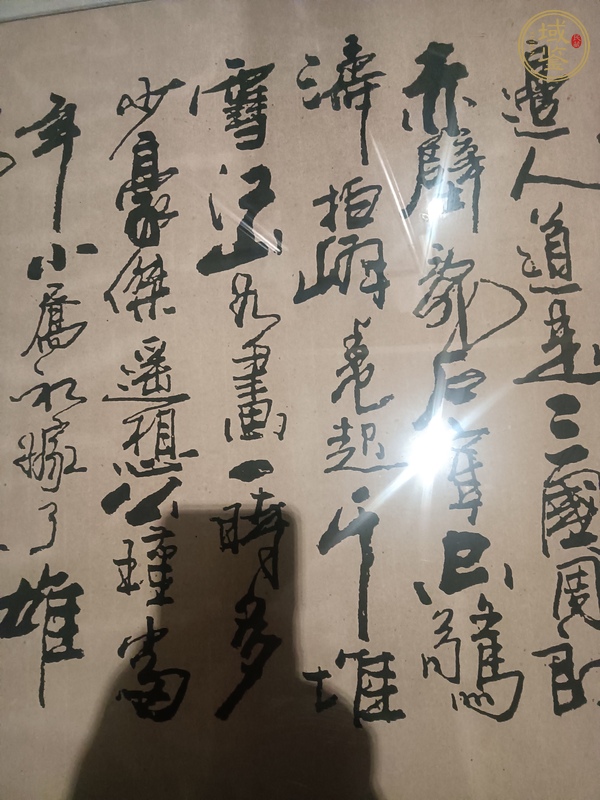 邊人道是三國周郎
赤壁亂石崩雲驚
濤拍岸卷起千堆
雪江山如畫一時多
少豪傑遙想公瑾當
年小喬初嫁了雄